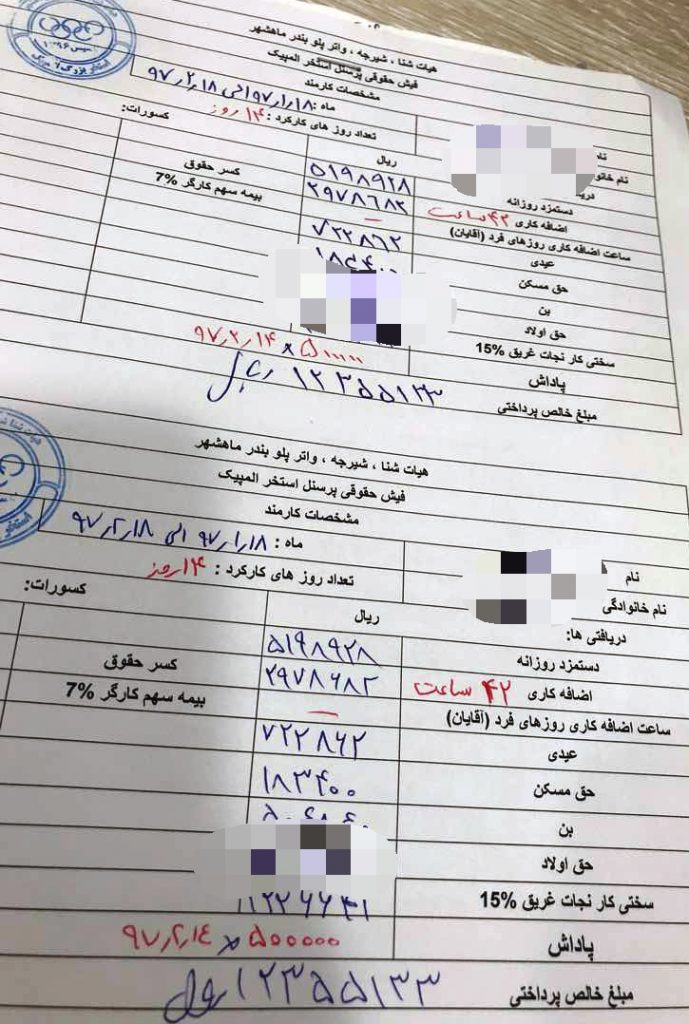 هیات شنا ، شیرجه ، واتر پلو بندر ماهشهر
فیش حقوقی پرسنل استخر المپیک
مشخصات کارمند
ماه : ۹۷/۱/۱۸ الی ۹۷/۲/۱۸
تعداد روز های کارکرد : ۱۴ روز
نام خانواد
ریال
کسورات:
دستمزد روزانه ۵۱۹۸۹۲۸ کسر حقوق
اضافه کاری ۴۲ ساعت ۲۹۷۸۶۸۲ بیمه سهم کارگر %7
ساعت اضافه کاری روزهای فرد (آقایان) —
عیدی ۷۲۲۸۶۲
حق مسکن
بن
حق اولاد
سختی کار نجات غریق %15
پاداش ۵۰۰۰۰۰ × ۹۷/۲/۱۴
مبلغ خالص پرداختی ۱۲۳۵۵۱۳۳ ریال
هیات شنا ، شیرجه ، واتر پلو بندر ماهشهر
فیش حقوقی پرسنل استخر المپیک
مشخصات کارمند
ماه : ۹۷/۱/۱۸ الی ۹۷/۲/۱۸
نام
تعداد روز های کارکرد : ۱۴ روز
نام خانوادگی
دریافتی ها: ریال کسورات:
دستمزد روزانه ۵۱۹۸۹۲۸ کسر حقوق
اضافه کاری ۴۲ ساعت ۲۹۷۸۶۸۲ بیمه سهم کارگر %7
ساعت اضافه کاری روزهای فرد (آقایان) —
عیدی ۷۲۲۸۶۲
حق مسکن ۱۸۳۴۰۰
بن
حق اولاد
سختی کار نجات غریق %15
پاداش ۵۰۰۰۰۰ × ۹۷/۲/۱۴
مبلغ خالص پرداختی ۱۲۳۵۵۱۳۳ ریال